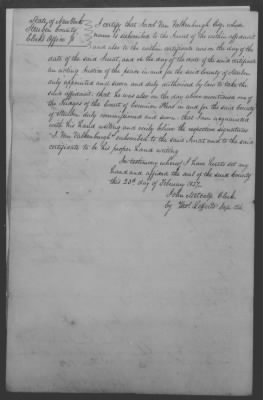 State of New York
Steuben County
Clerks Office
I certify that Jacob Van Valkenburgh Esq. whose
name is subscribed to the Jurat of the within affidavit
and also to the within certificate was on the day of the
date of the said Jurat, and on the day of the date of the said certificate
an acting Justice of the peace in and for the said County of Steuben
duly appointed and sworn and duly authorised by law to take the
said affidavit. that he was also on the day above mentioned one of
the Judges of the Court of Common Pleas in and for the said County
of Steuben duly commissioned and sworn that I am acquainted
with his hand writing and verily believe the respective signatures
"J. Van Valkenburgh" subscribed to the said Jurat and to the said
certificate to be his proper hand writing
In testimony whereof I have hereto set my
hand and affixed the seal of the said County
this 20th day of February 1837.
John Metcalfe Clerk
by